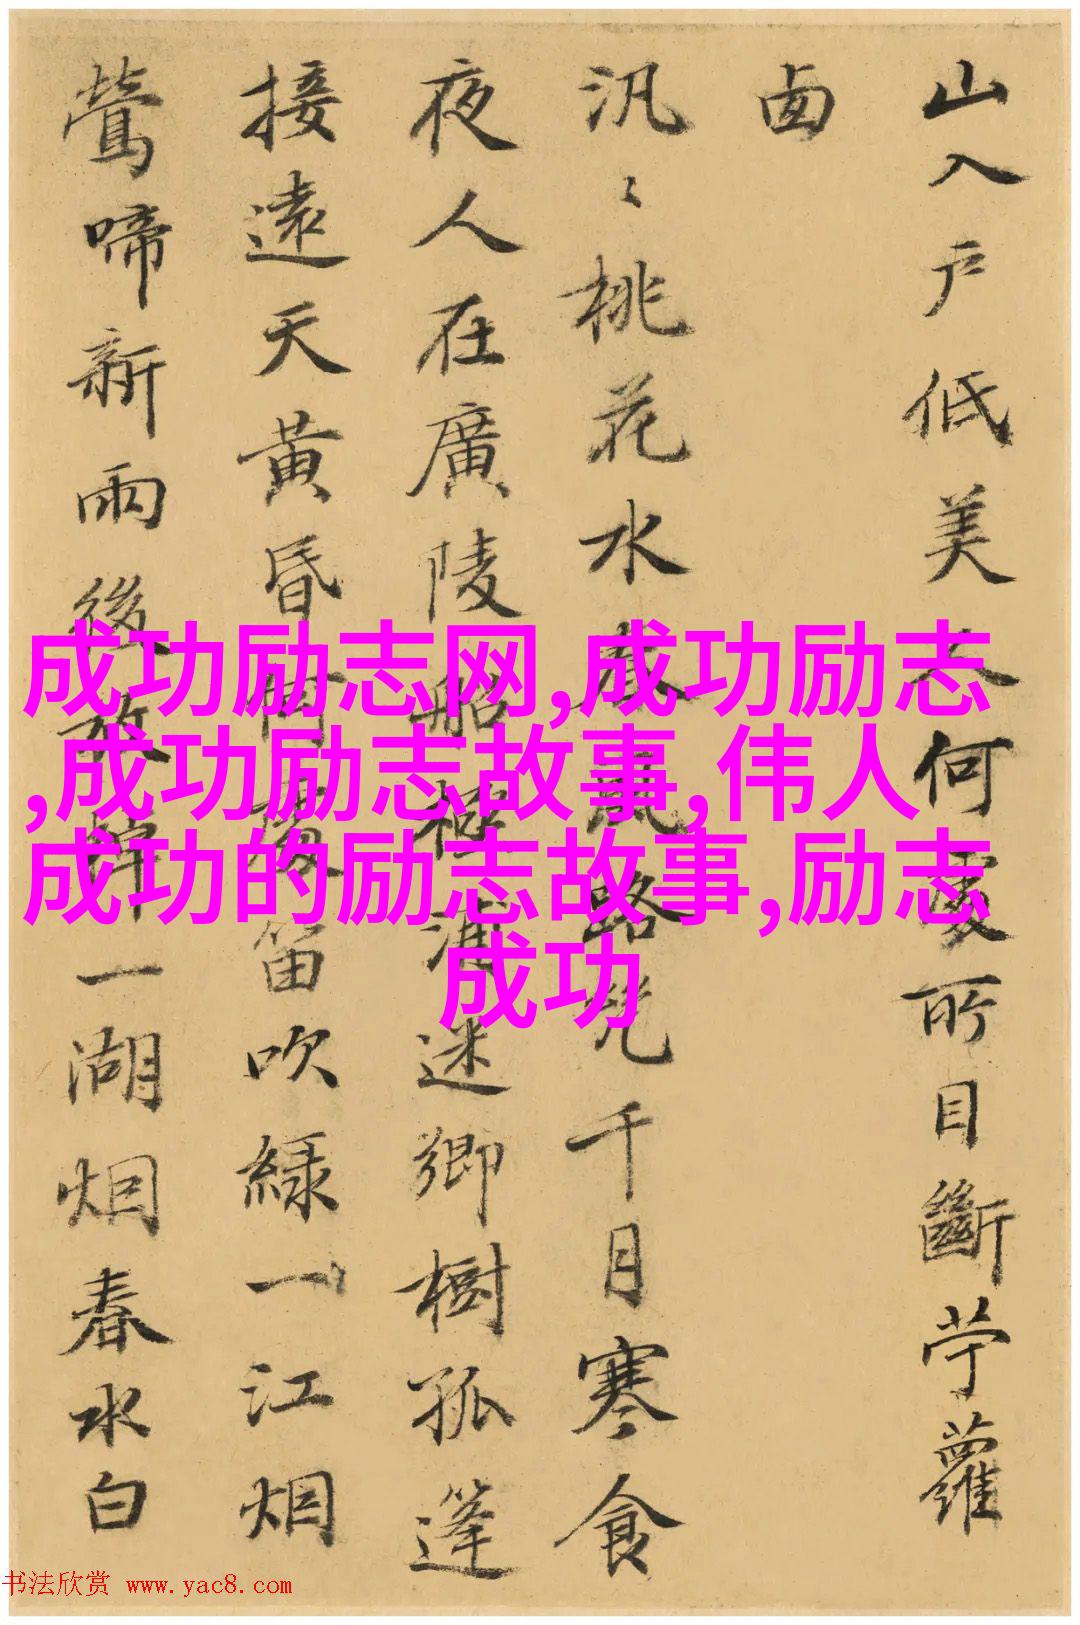 山入户低美人何處所目斷苧蘿
汎〻桃花水春風路幾千月寒食
夜人在廣陵船極浦迷鄉樹孤篷
接遠天黃昏聞笛吹綠一江烟
鶯啼新雨後放棹一湖烟春水白
成功励志网,成功励志
,成功励志故事,伟人
成功的励志故事,励志
成功
书法欣赏 www.yac8.com